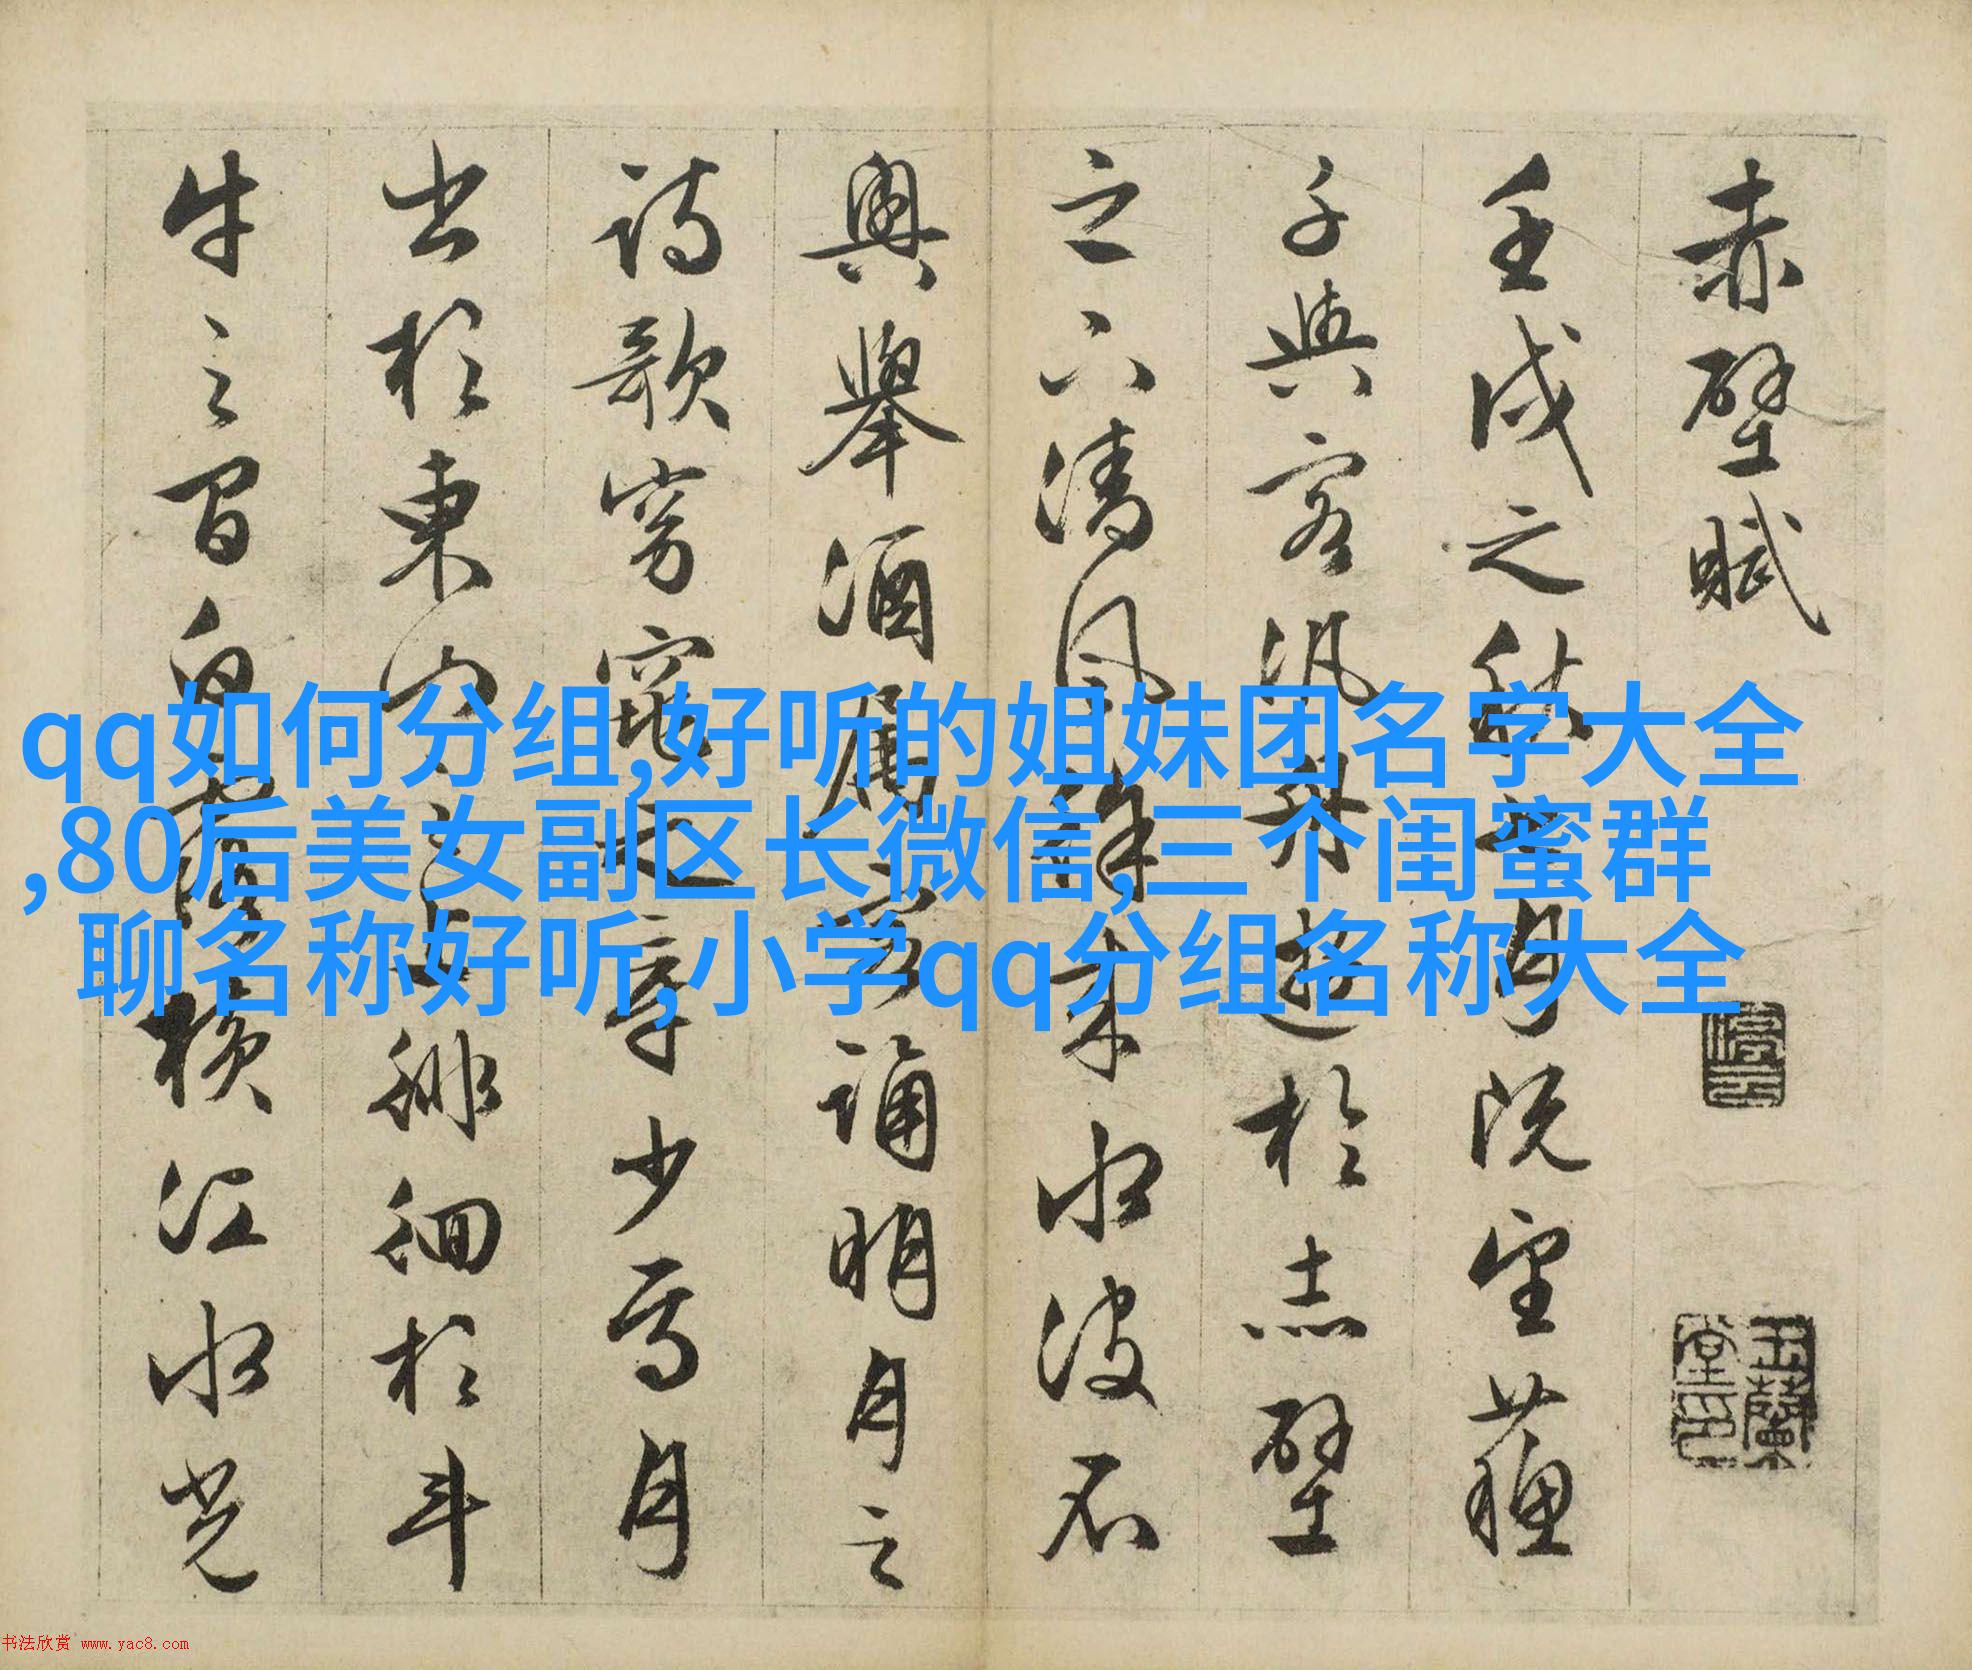 赤壁賦
壬戌之秋七月既望蘇
子與客汎舟遊於赤壁
之下清風徐來水波不
興舉酒屬客誦明月之
詩歌窈窕之章少焉月
出於東山之上徘徊於斗
牛之間白露橫江水光
停雲
玉蘭堂印
qq如何分组,好听的姐妹团名字大全
,80后美女副区长微信,三个闺蜜群
聊名称好听,小学qq分组名称大全
书法欣赏 www.yac8.com